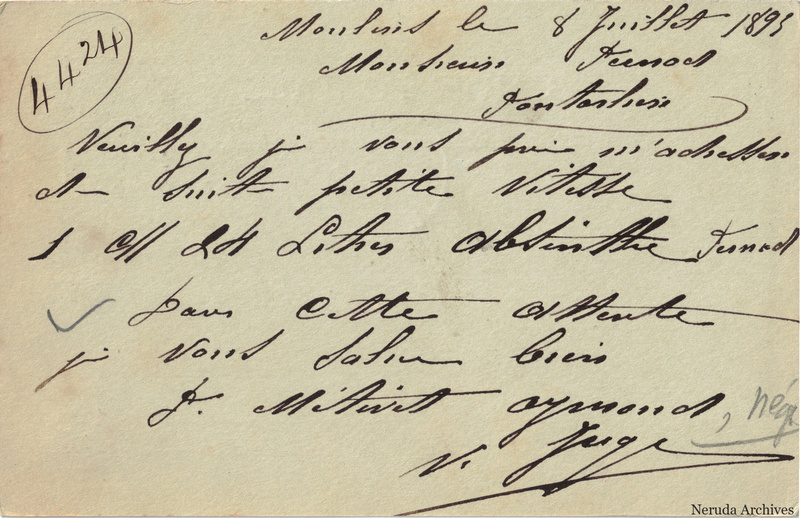 4424
Moulins le 8 Juillet 1895
Monsieur Pernod
Pontarlier
Veuillez je vous prie m'adresser
de suite petite Vitesse
1 C/ 24 Litres Absinthe Pernod
Dans cette attente
je vous salue bien
P. Métivet Aymond
, nég
V. Juge
Neruda Archives